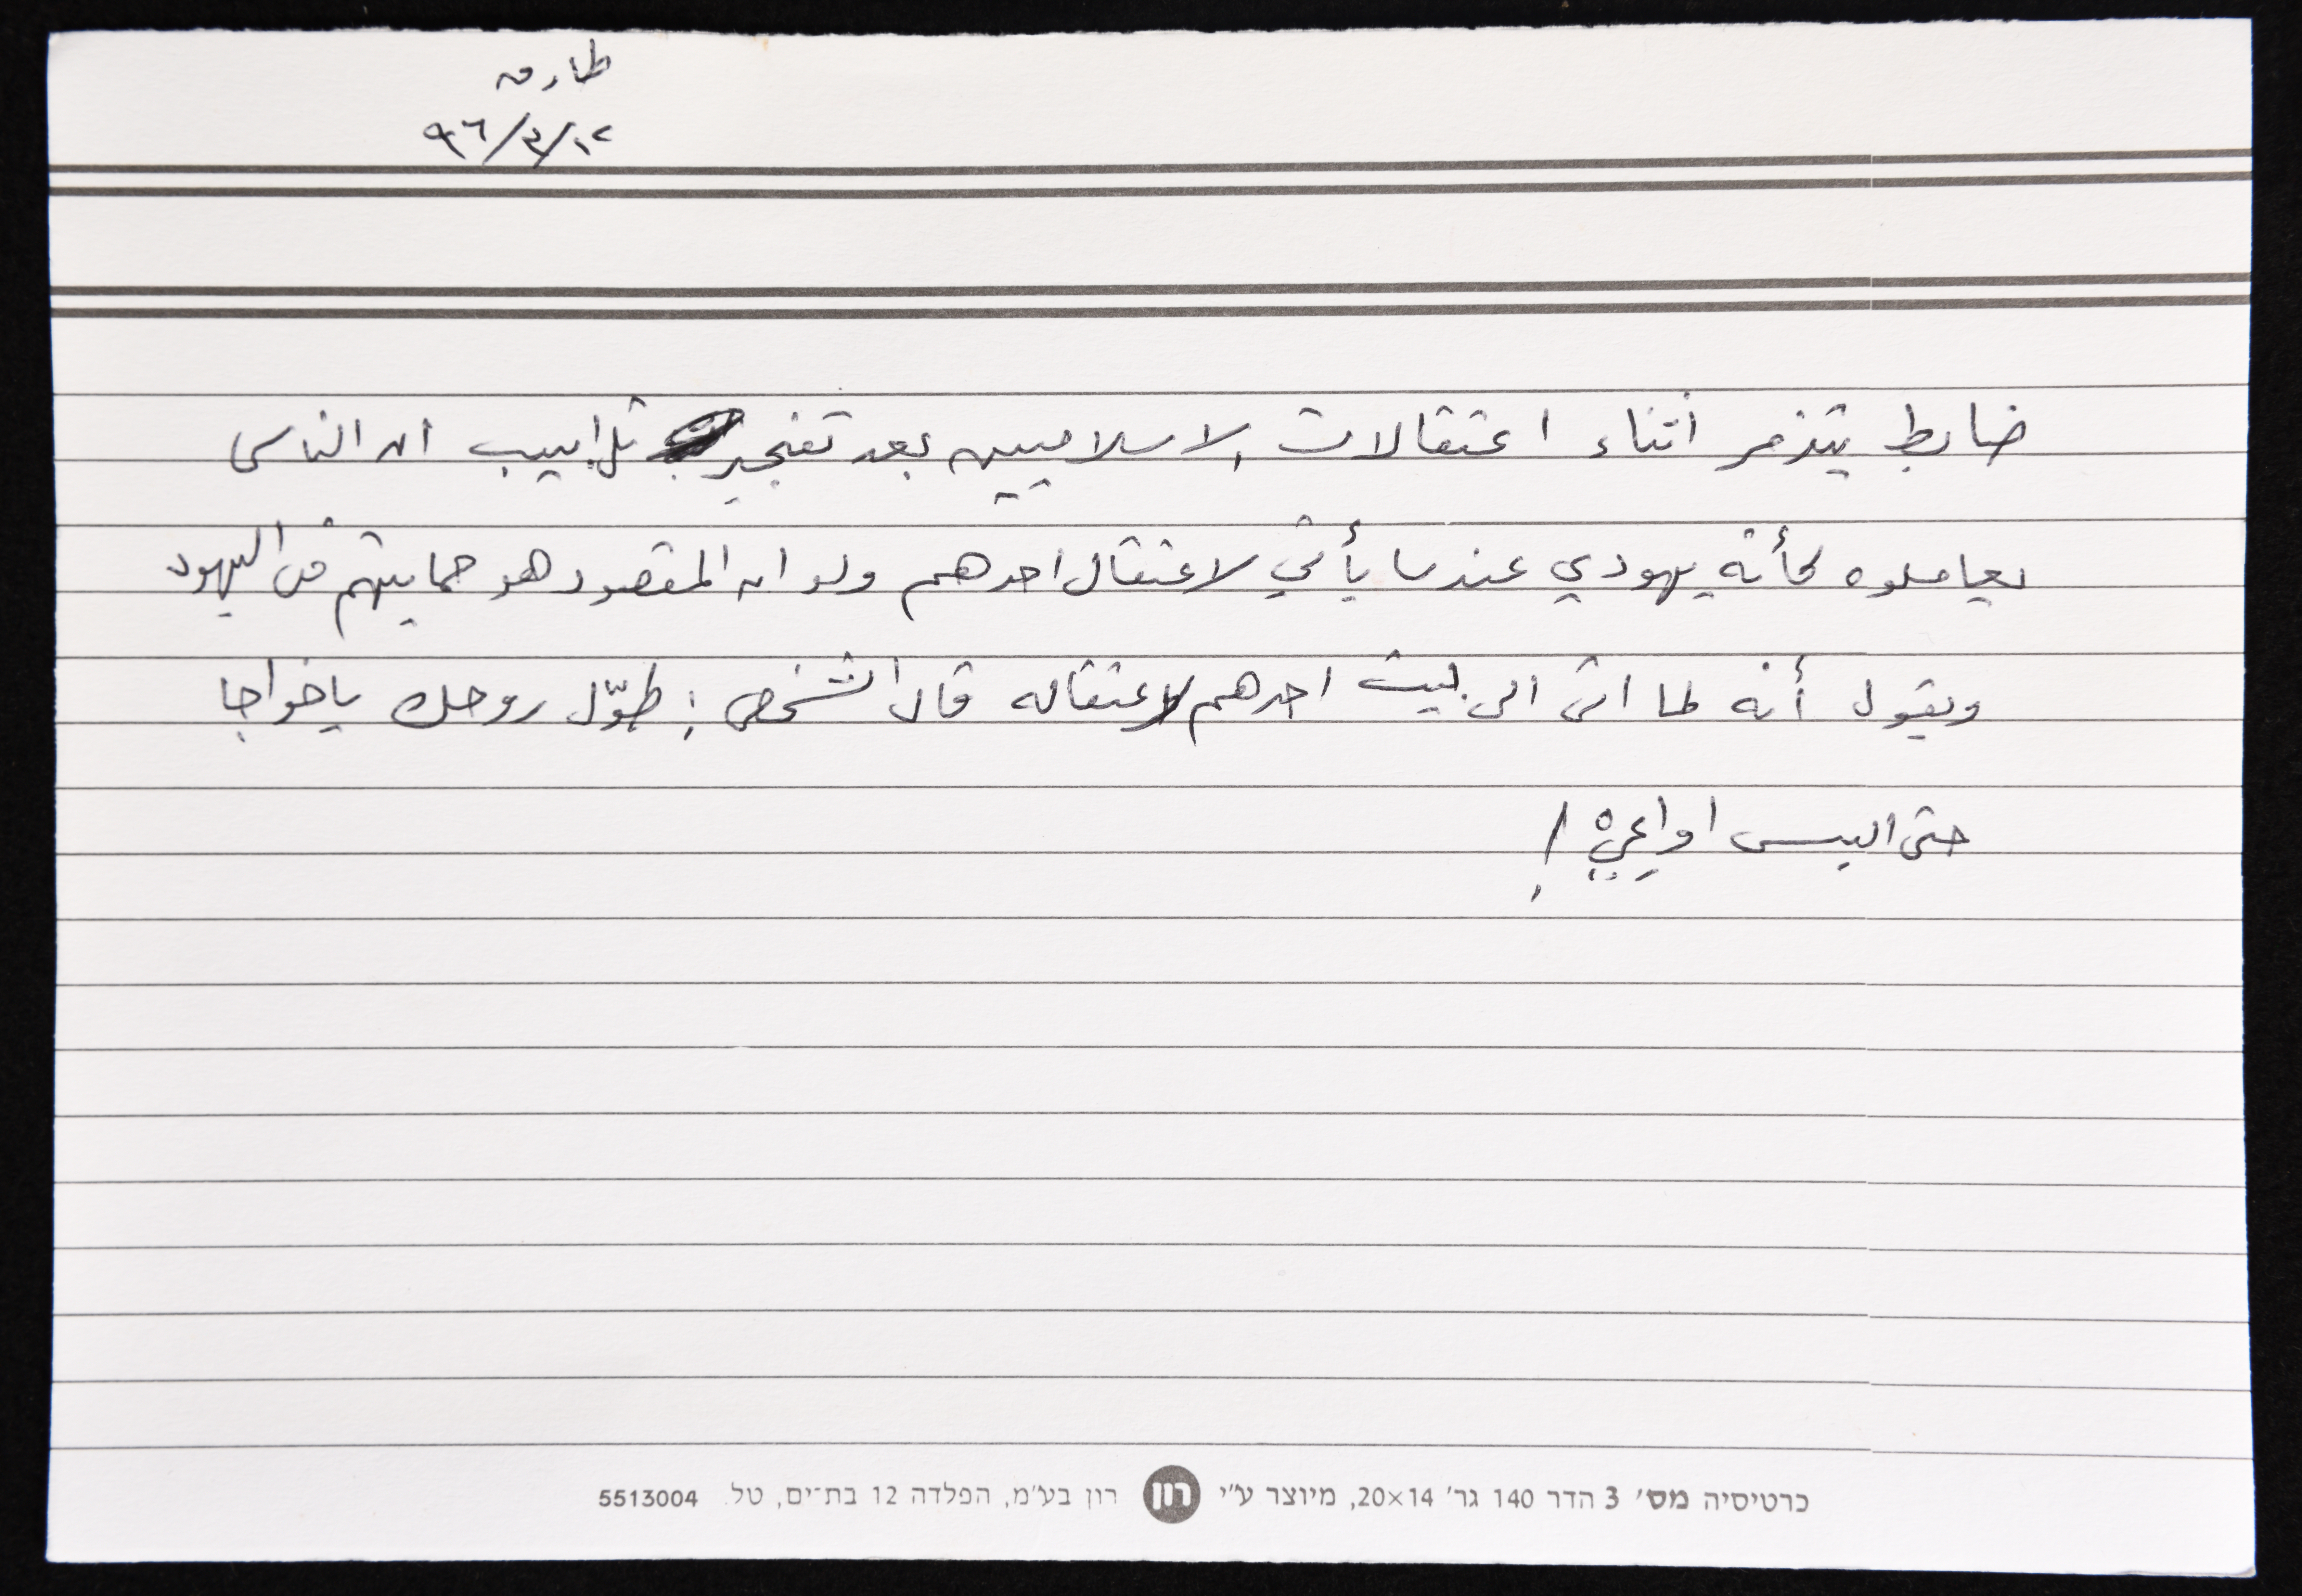 طارق
١٢/٣/٩٦
ضابط يتذمر أثناء اعتقالات الاسلاميين بعد تفجير تل ابيب ان الناس
يعاملوه كأنه يهودي عندما يأتي لاعتقال احدهم ولو ان المقصود هو حمايتهم من اليهود
ويقول أنه لما اتى الى بيت احدهم لاعتقاله قال الشخص : طوّل روحك ياخواجا
حتى البس اواعيّ !
כרטיסיה מס׳ 3 הדר 140 גר׳ 20×14, מיוצר ע״י רון רון בע״מ, הפלדה 12 בת־ים, טל. 5513004